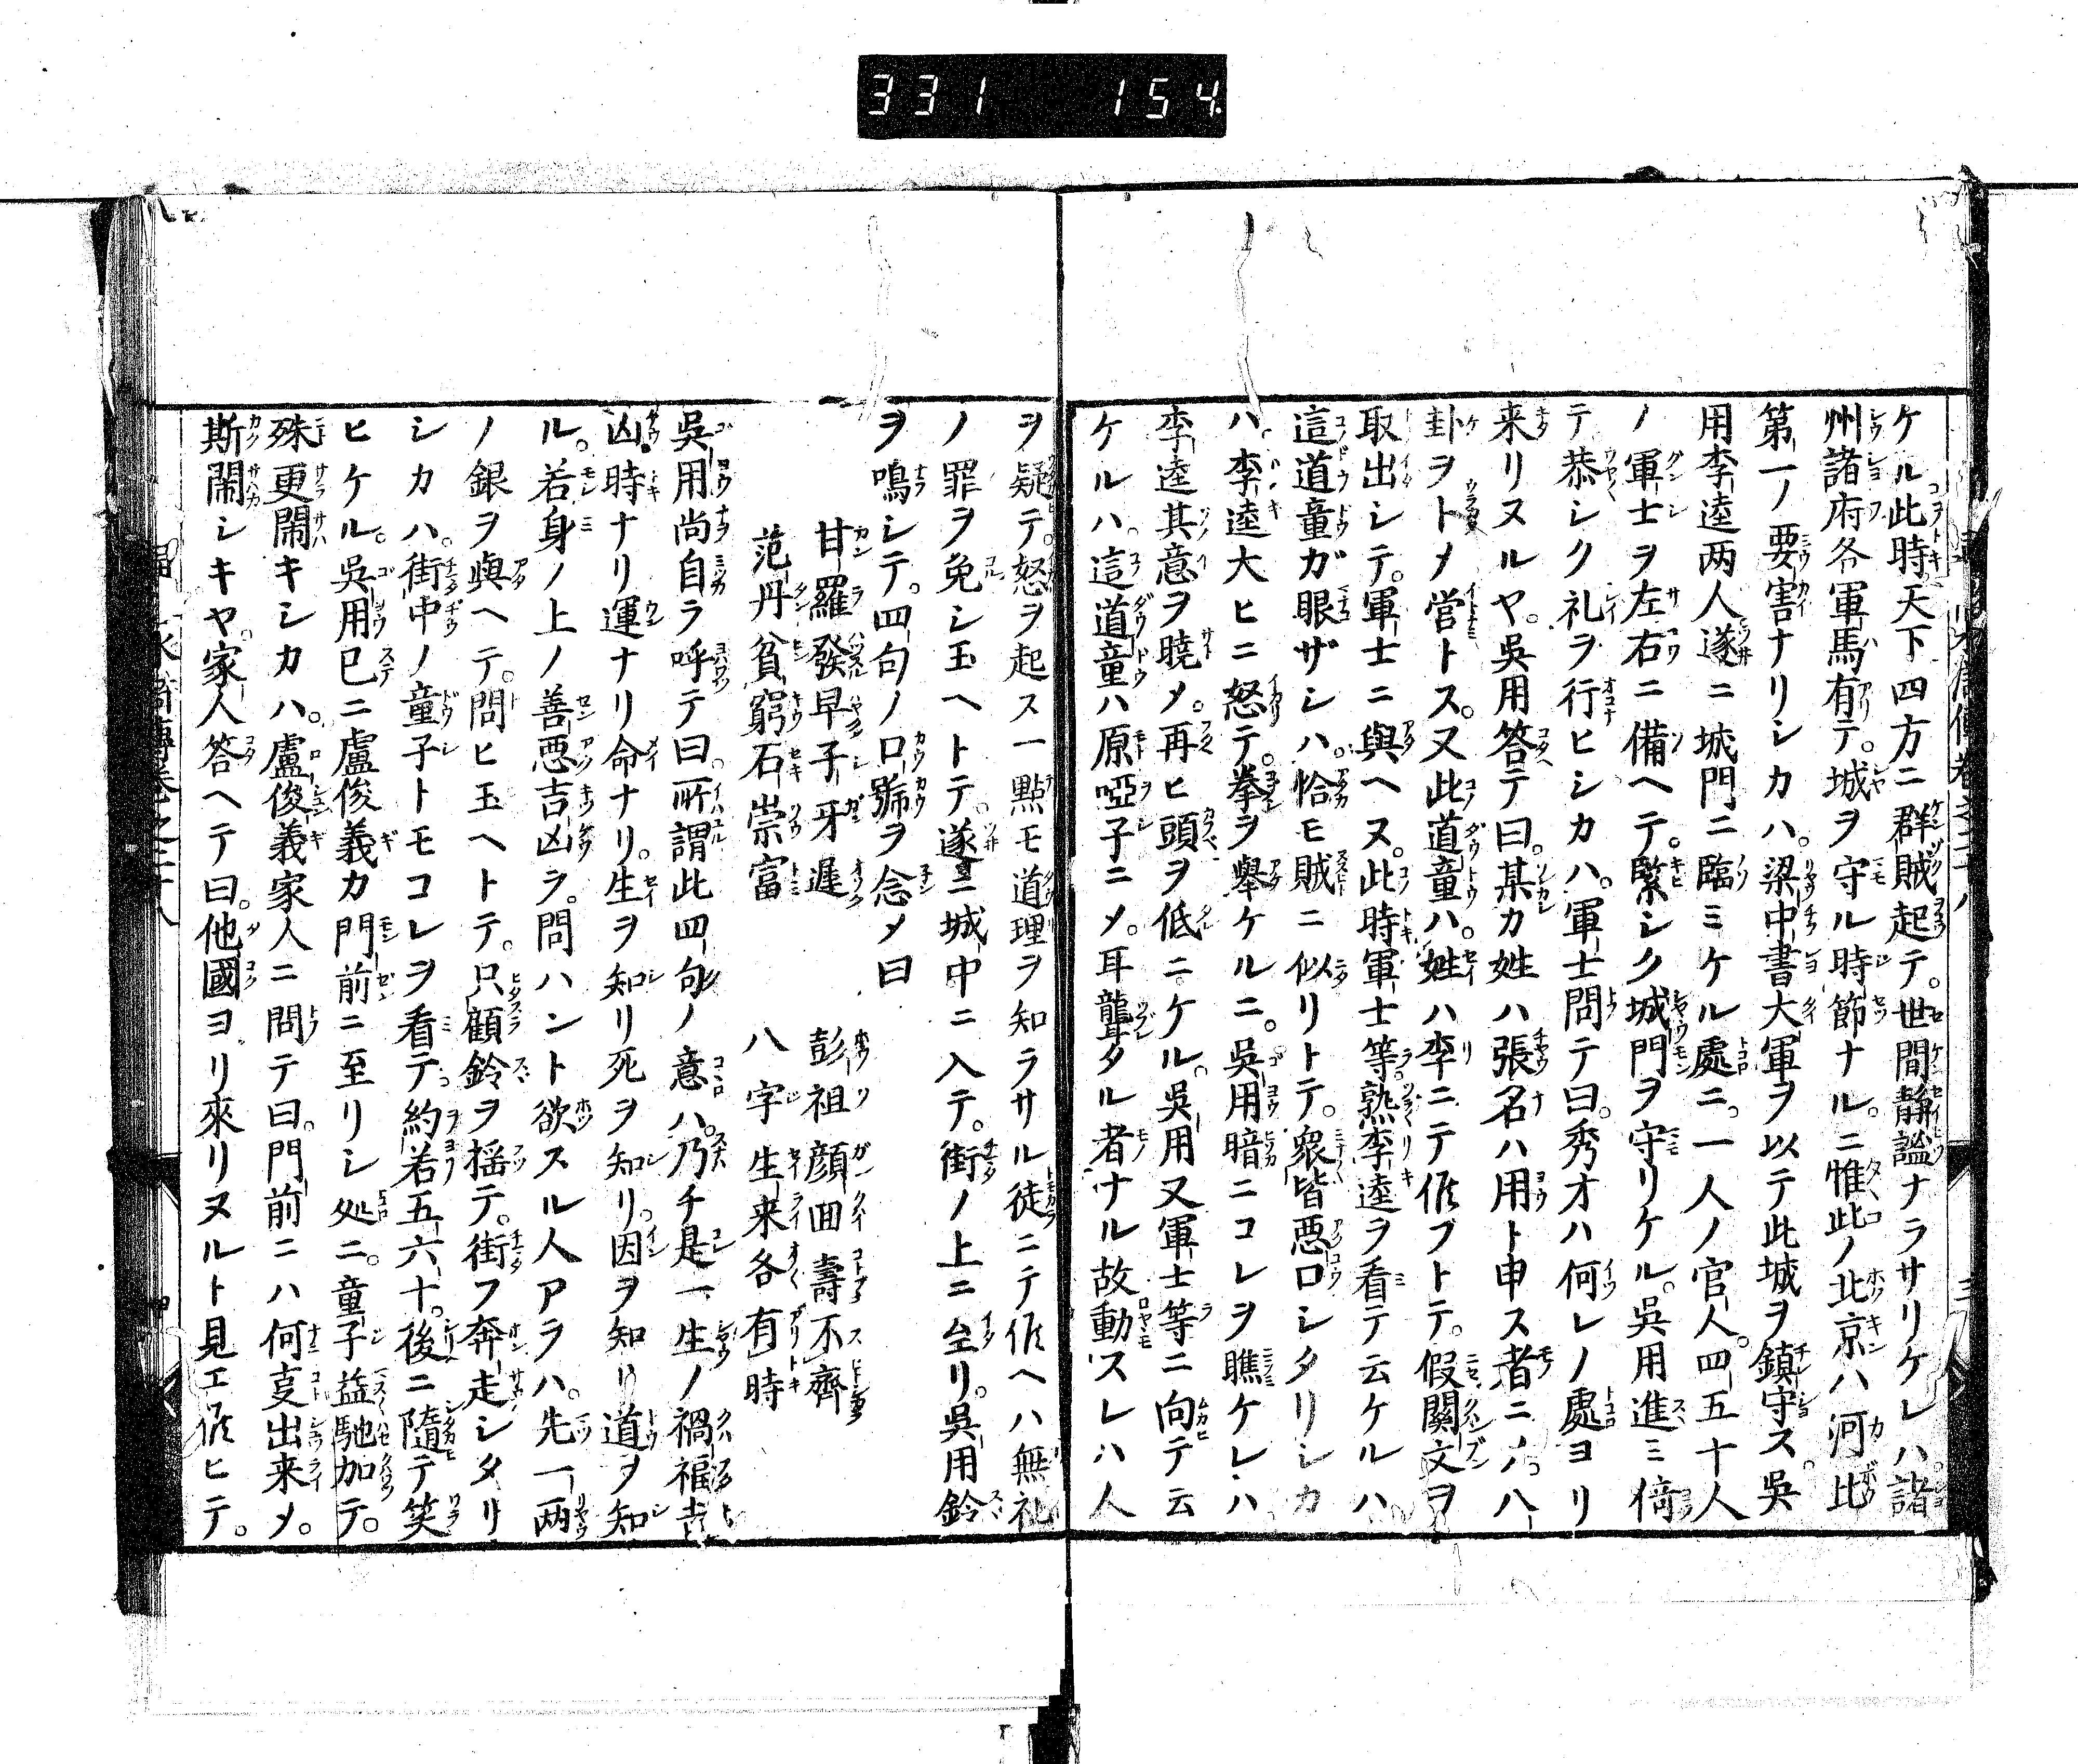 331 154
ケル此時天下四方ニ群賊起テ。世間静謐ナラサリケレハ諸
州諸府各軍馬有テ。城ヲ守ル時節ナル。ニ惟此ノ北京ハ河北
第一ノ要害ナリシカハ。梁中書大軍ヲ以テ此城ヲ鎮守ス。吳
用李逵两人遂ニ城門ニ臨ミケル處ニ。一人ノ官人。四五十人
ノ軍士ヲ左右ニ備ヘテ。緊シク城門ヲ守リケル。吳用進ミ倚
テ恭シク礼ヲ行ヒシカハ。軍士問テ曰。秀才ハ何レノ處ヨリ
来リヌルヤ。吳用答テ曰。某カ姓ハ張名ハ用ト申ス者ニノ。八
卦ヲトメ営トス。又此道童ハ。姓ハ李ニテ候ブトテ。假關文ヲ
取出シテ。軍士ニ與ヘヌ。此時軍士等。熟李逵ヲ看テ云ケルハ
這道童ガ眼ザシハ。恰モ賊ニ似リトテ。衆皆惡口シタリシカ
ハ。李逵大ヒニ怒テ。拳ヲ舉ケルニ。吳用暗ニコレヲ瞧ケレハ
李逵其意ヲ曉メ。再ヒ頭ヲ低ニケル。吳用又軍士等ニ向テ云
ケルハ。這道童ハ原啞子ニメ。耳聾タル者ナル故動スレハ人
ヲ疑テ。怒ヲ起ス一點モ道理ヲ知ラサル徒ニテ候ヘハ無礼
ノ罪ヲ免シ玉ヘトテ。遂ニ城中ニ入テ。街ノ上ニ至リ。吳用鈴
ヲ鳴シテ。四句ノ口號ヲ念メ曰
甘羅發早子牙遲　彭祖顔囬壽不齊
范丹貧窮石崇富　八字生来各有時
吳用尚自ラ呼テ曰。所謂此四句ノ意ハ。乃チ是一生ノ禍福吉
凶。時ナリ運ナリ命ナリ。生ヲ知リ死ヲ知リ。因ヲ知リ道ヲ知
ル。若身ノ上ノ善惡吉凶ヲ。問ハント欲スル人アラハ。先一两
ノ銀ヲ與ヘテ。問ヒ玉ヘトテ。只顧鈴ヲ揺テ。街フ奔走シタリ
シカハ。街中ノ童子トモコレヲ看テ約若五六十。後ニ隨テ笑
ヒケル。吳用已ニ盧俊義カ門前ニ至リシ処ニ。童子益馳加テ。
殊更閙キシカハ。盧俊義家人ニ問テ曰。門前ニハ何㕝出来メ。
斯閙シキヤ。家人答ヘテ曰。他國ヨリ來リヌルト見エ候ヒテ。